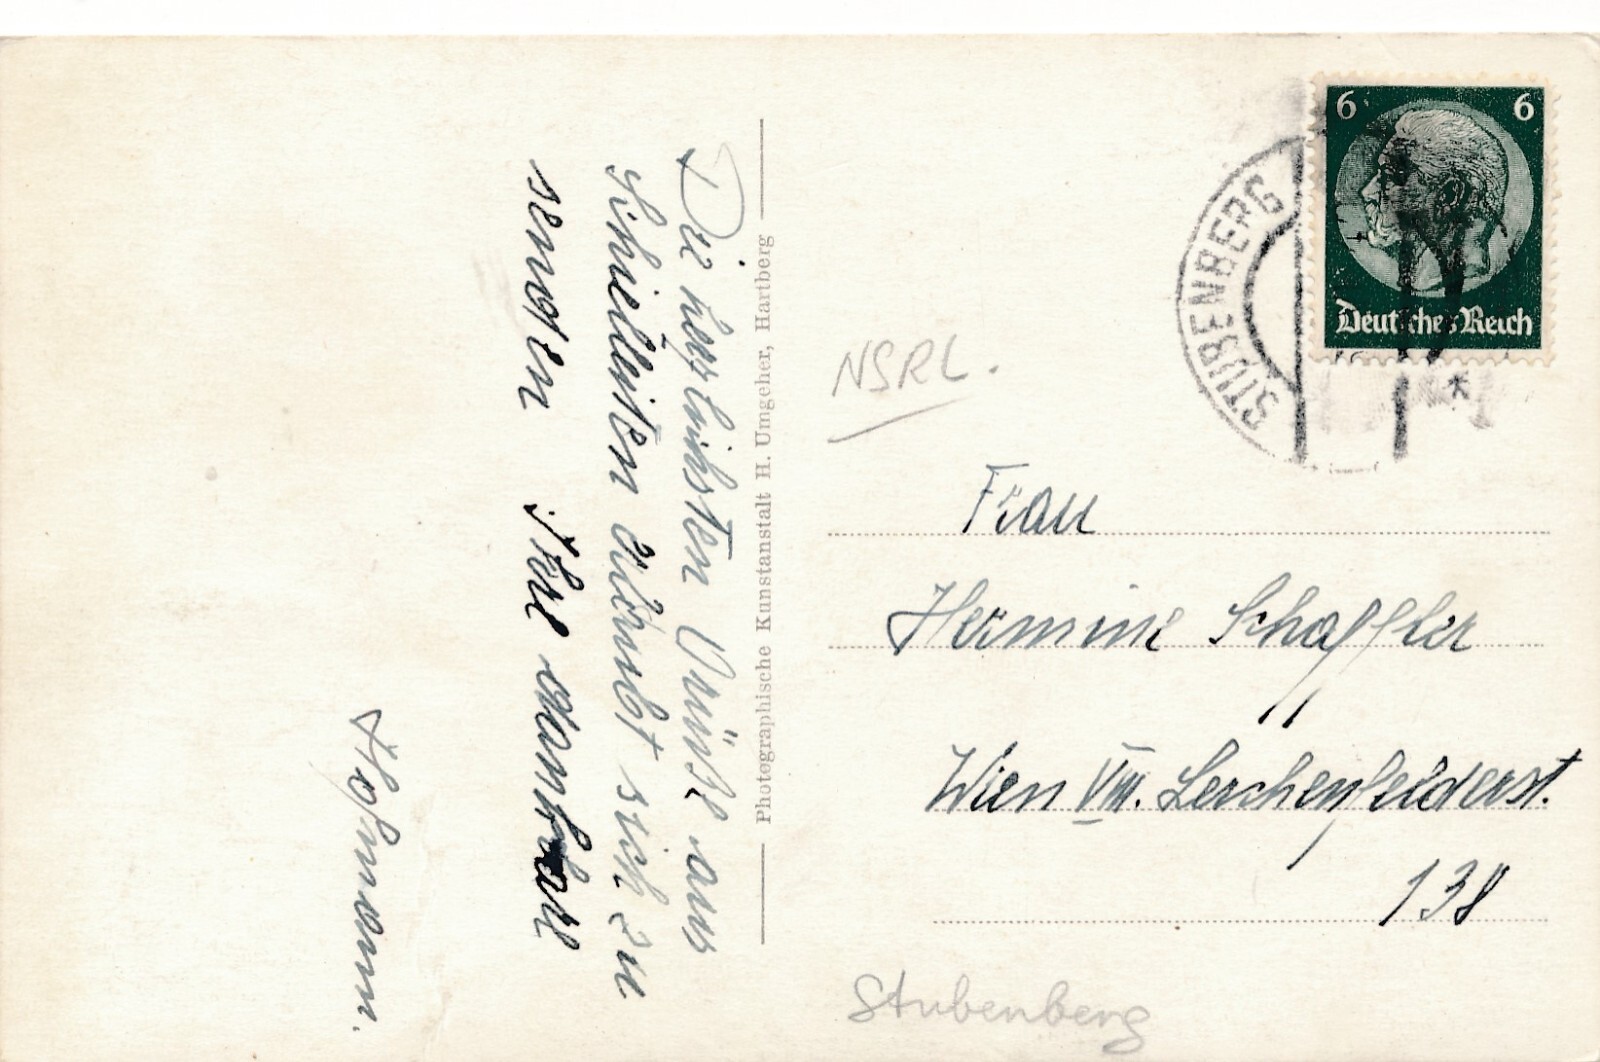 Die herzlichsten Grüße aus
Schielleiten erlaubt sich zu
senden Ihre dankbare
Hofmann.
Photographische Kunstanstalt H. Umgeher, Hartberg
6 6
Deutsches Reich
STUBENBERG
*
NSRL.
Frau
Hermine Schaffler
Wien VIII. Lerchenfelderst.
138
Stubenberg